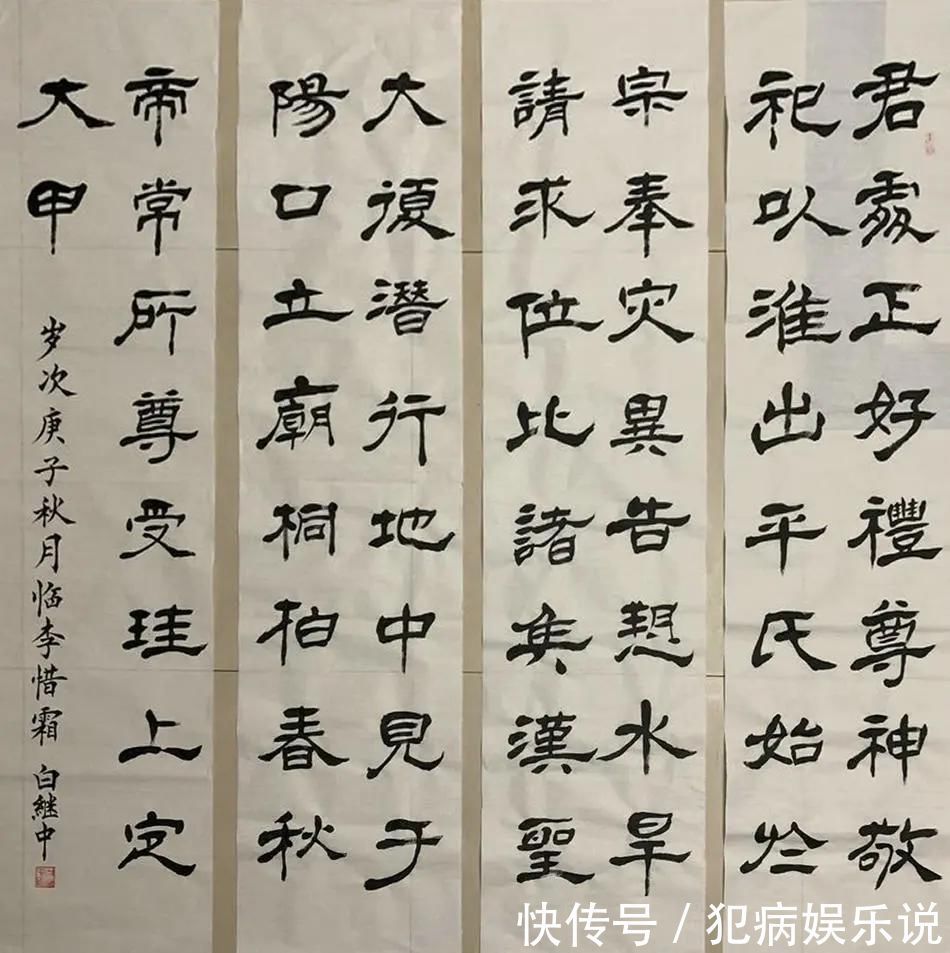 君處正好禮尊神敬
祀以淮出平氏始於
宗奉灾異告愬水旱
請求位比諸矦漢聖
大復潛行地中見于
陽口立廟桐柏春秋
帝常所尊受珪上定
大甲
岁次庚子秋月临李惜霜 白継中
快传号/犯病娱乐说